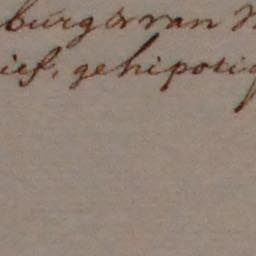 burger van
ief, gehipotiq